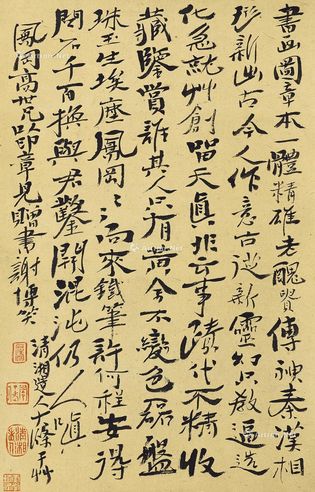 書画圖章本一體精雄老醜貴傳神秦漢相
形新出古今人作意古從新靈幻只教逼造
化急就艸創留天真非云事蹟代不精收
藏鑒賞誰其人只有黄金不變色磊盤
珠玉生埃塵鳳岡〻〻向來鐵筆許何程安得
閒石千百換與君鑿開混沌仍人嗔
鳳岡高世兄以印章見贈書謝博笑
清湘遺人大滌子艸